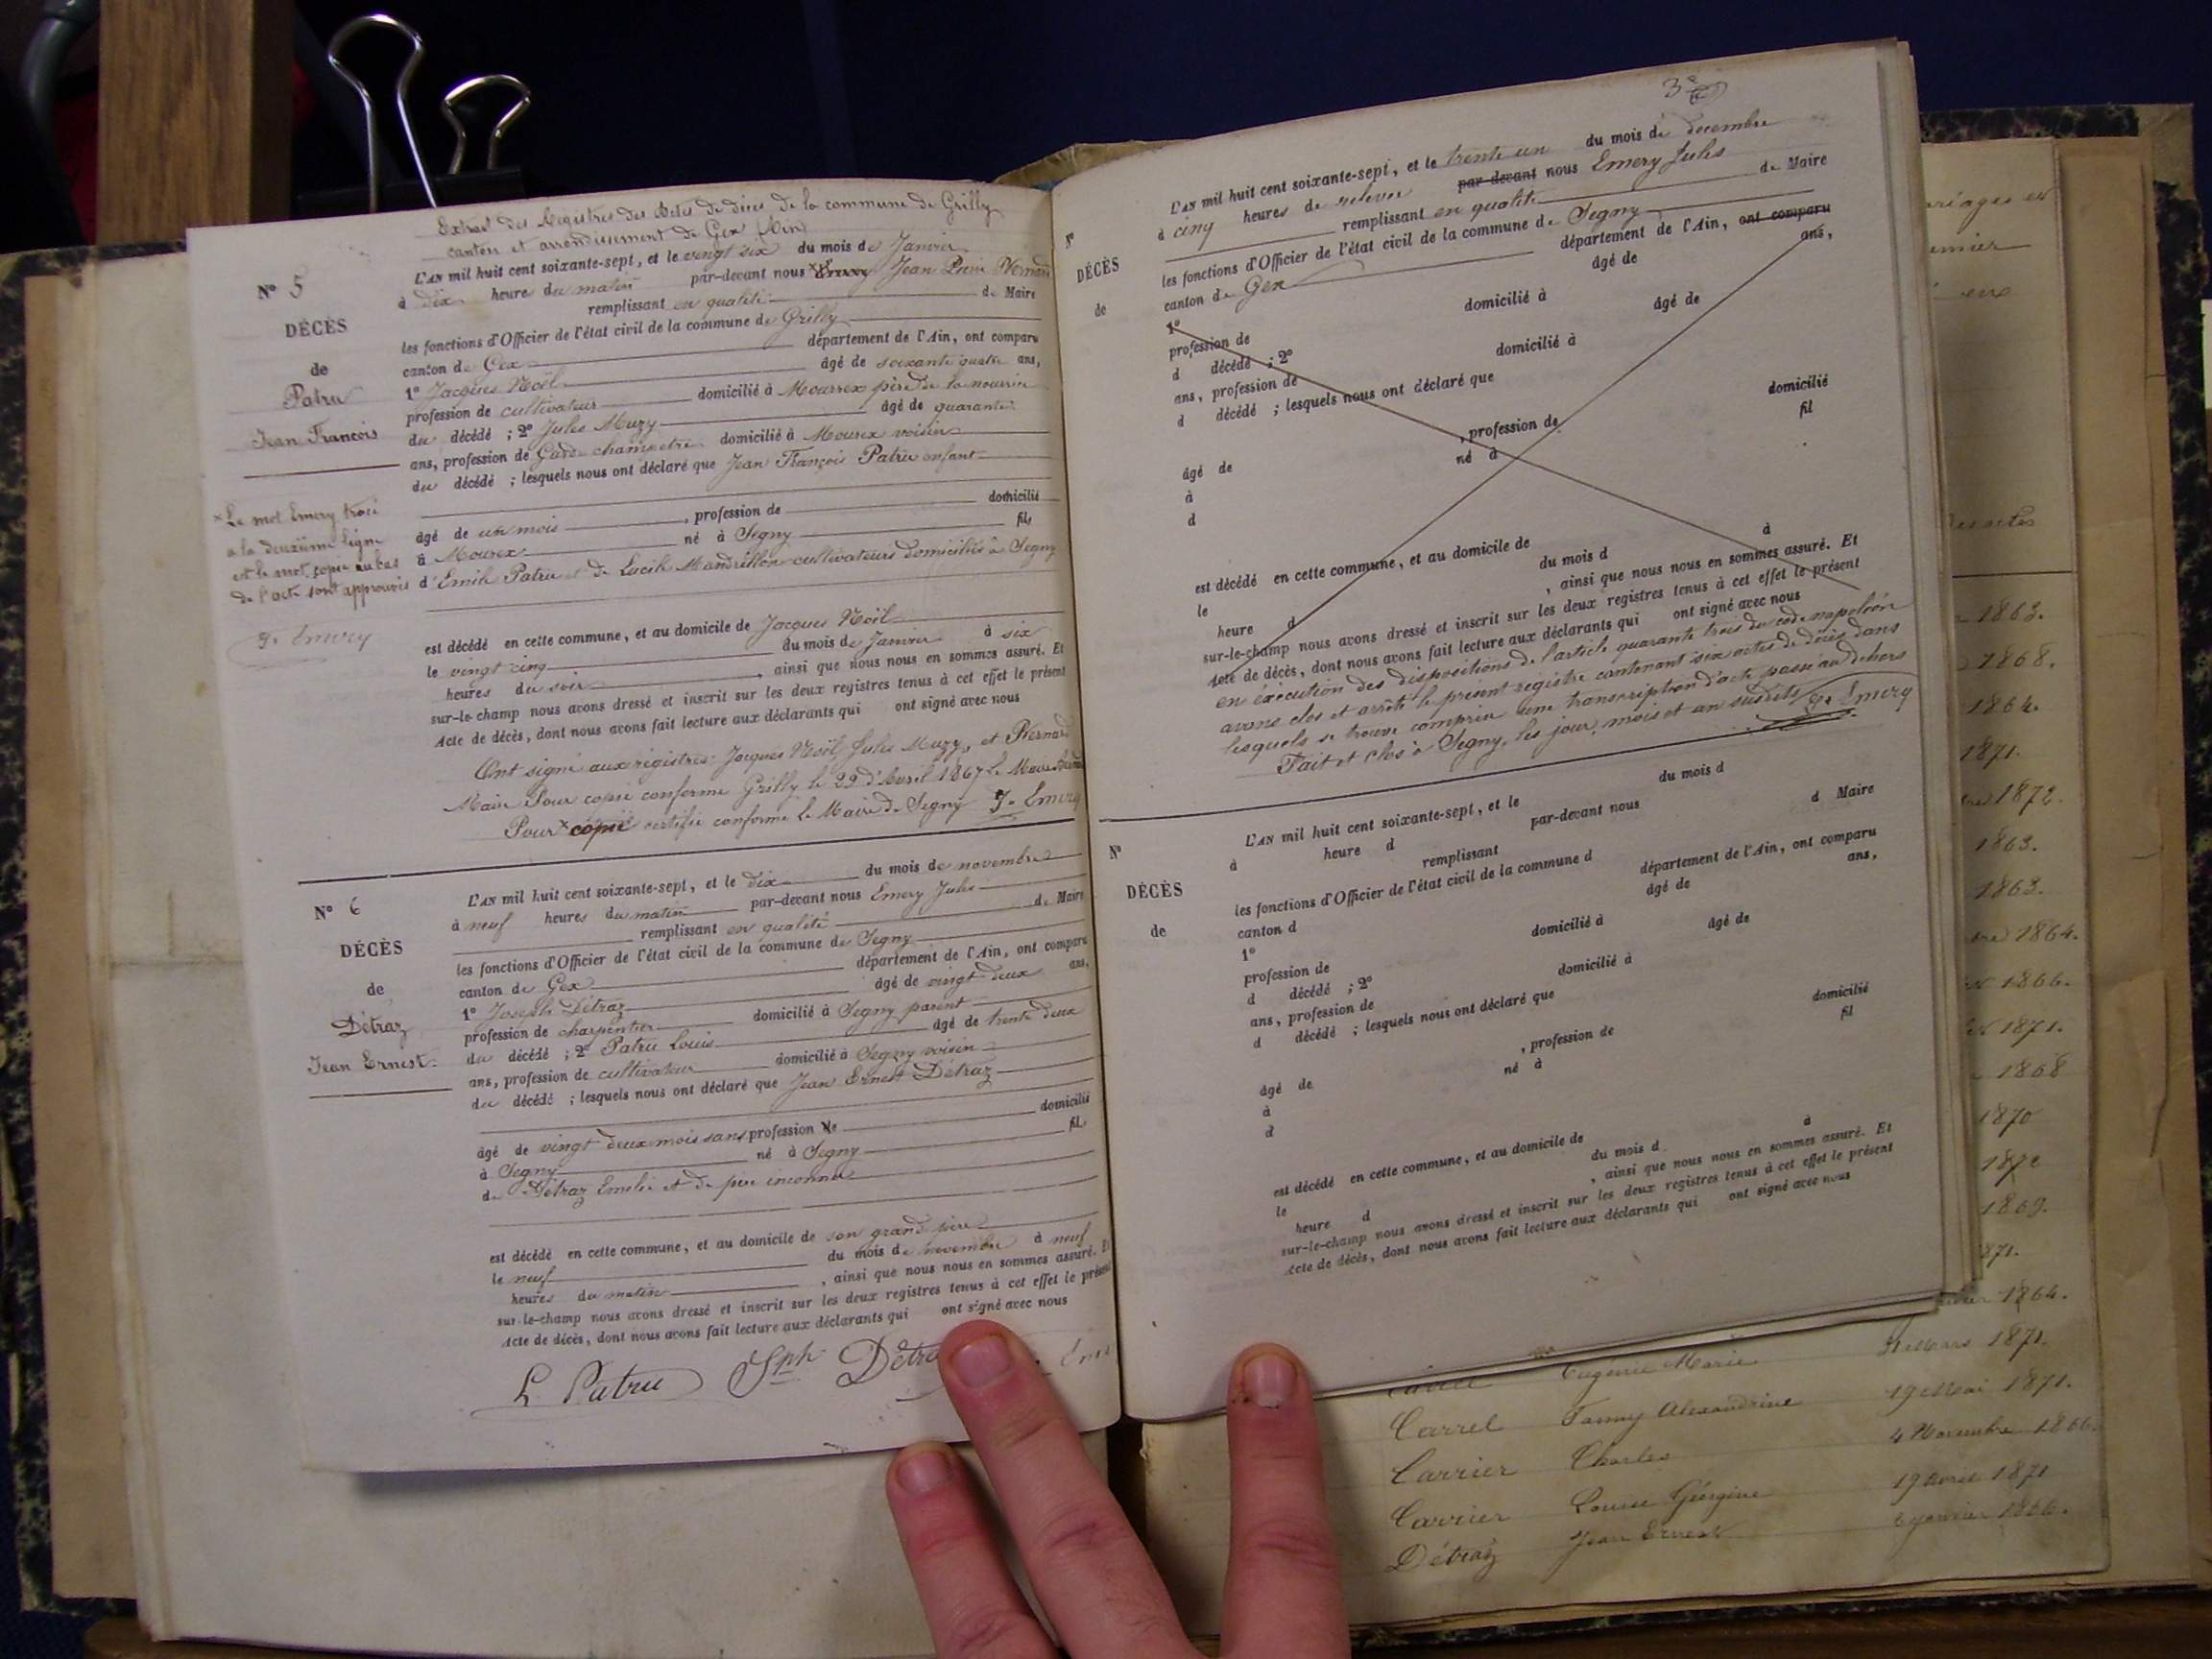 Extrait des Registres des Actes de décès de la commune de Grilly
canton et arrondissement de Gex (Ain)
N° 5
DÉCÈS
de
Patru
Jean François
L'AN mil huit cent soixante-sept, et le vingt six du mois de Janvier
à dix heures du matin par-devant nous × Emery Jean Pierre Pernard
remplissant en qualité de Maire
les fonctions d'Officier de l'état civil de la commune de Grilly
canton de Gex département de l'Ain, ont comparu
1° Jacques Noël âgé de soixante quatre ans,
profession de cultivateur domicilié à Mourrex père de la nourrice
du décédé ; 2° Jules Muzy âgé de quarante
ans, profession de Garde champetre domicilié à Mourex voisin
du décédé ; lesquels nous ont déclaré que Jean François Patru enfant
âgé de un mois , profession de domicilié
à Mourex né à Segny fils
d'Emile Patru et de Lucile Mandrillon cultivateurs domiciliés à Segny
× Le mot Emery tracé
a la deuxième ligne
et le mot copie au bas
de l'acte sont approuvés
J. Emery
est décédé en cette commune, et au domicile de Jacques Noël
le vingt cinq du mois de Janvier à six
heures du soir , ainsi que nous nous en sommes assuré. Et
sur-le-champ nous avons dressé et inscrit sur les deux registres tenus à cet effet le présent
Acte de décès, dont nous avons fait lecture aux déclarants qui ont signé avec nous
Ont signé aux régistres: Jacques Noël, Jules Muzy, et Pernard
Maire Pour copie conforme Grilly le 22 d'Avril 1867 le Maire
Pour × copie certifié conforme le Maire de Segny J. Emery
N° 6
DÉCÈS
de
Détraz
Jean Ernest
L'AN mil huit cent soixante-sept, et le dix du mois de novembre
à neuf heures du matin par-devant nous Emery Jules
remplissant en qualité de Maire
les fonctions d'Officier de l'état civil de la commune de Segny
canton de Gex département de l'Ain, ont comparu
1° Joseph Détraz âgé de vingt deux ans,
profession de charpentier domicilié à Segny parent
du décédé ; 2° Patru Louis âgé de trente deux
ans, profession de cultivateur domicilié à Segny voisin
du décédé ; lesquels nous ont déclaré que Jean Ernest Détraz
âgé de vingt deux mois sans profession de domicilié
à Segny né à Segny fils
de Détraz Emélie et de père inconnu
est décédé en cette commune, et au domicile de son grand père
le neuf du mois de novembre à neuf
heures du matin , ainsi que nous nous en sommes assuré. Et
sur-le-champ nous avons dressé et inscrit sur les deux registres tenus à cet effet le présent
Acte de décès, dont nous avons fait lecture aux déclarants qui ont signé avec nous
L. Patru Jph Détra
N°
DÉCÈS
de
L'AN mil huit cent soixante-sept, et le trente un du mois de décembre
à cinq heures de relevée par-devant nous Emery Jules
remplissant en qualité de Maire
les fonctions d'Officier de l'état civil de la commune de Segny
canton de Gex département de l'Ain, ont comparu
1° âgé de ans,
profession de domicilié à
d décédé ; 2° âgé de
ans, profession de domicilié à
d décédé ; lesquels nous ont déclaré que
âgé de , profession de domicilié
à né à fil
d
est décédé en cette commune, et au domicile de
le du mois d à
heure d , ainsi que nous nous en sommes assuré. Et
sur-le-champ nous avons dressé et inscrit sur les deux registres tenus à cet effet le présent
Acte de décès, dont nous avons fait lecture aux déclarants qui ont signé avec nous
en éxécution des dispositions de l'article quarante trois du code napoléon
avons clos et arrêté le présent registre contenant six actes de décès dans
lesquels se trouve comprise une transcription d'acte passé au dehors
Fait et clos à Segny, les jour, mois et an susdits J. Emery
N°
DÉCÈS
de
L'AN mil huit cent soixante-sept, et le du mois d
à heure d par-devant nous
remplissant d Maire
les fonctions d'Officier de l'état civil de la commune d
canton d département de l'Ain, ont comparu
1° âgé de ans,
profession de domicilié à
d décédé ; 2° âgé de
ans, profession de domicilié à
d décédé ; lesquels nous ont déclaré que
âgé de , profession de domicilié
à né à fil
d
est décédé en cette commune, et au domicile de
le du mois d à
heure d , ainsi que nous nous en sommes assuré. Et
sur-le-champ nous avons dressé et inscrit sur les deux registres tenus à cet effet le présent
Acte de décès, dont nous avons fait lecture aux déclarants qui ont signé avec nous
1863.
1868.
1864.
1871.
1872.
1863.
1863.
1864.
1866.
1871.
1868
1870
1872
1869.
871.
1864.
Eugénie Marie Mars 1871.
Carrel Fanny Alexandrine 19 Mai 1871.
Carrier Charles 4 Novembre 1866.
Carrier Louise Géorgine 19 Avril 1871
Détraz Jean Ernest janvier 1866.